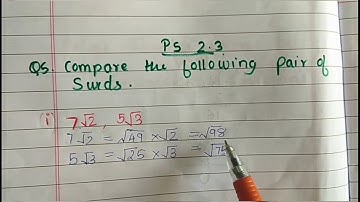 PS 2.3
Q5. Compare the following pair of
Surds.
(i) 7√2, 5√3
7√2 = √49 × √2 = √98
5√3 = √25 × √3 = √75